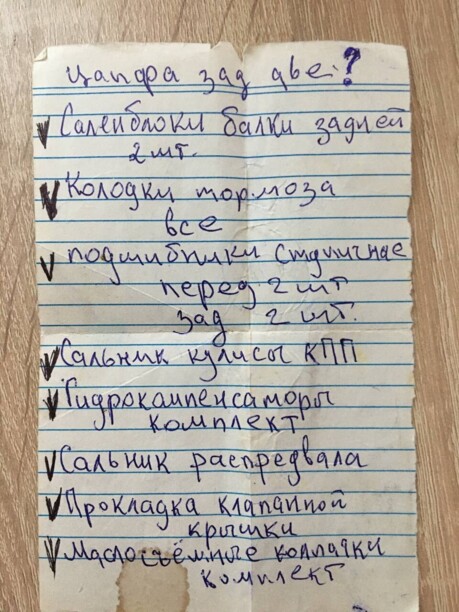 цапфа зад две ?
✓ Саленблоки балки задней
2 шт.
✓ Колодки тормоза
все
✓ подшибники ступичнае
перед 2 шт
зад 2 шт.
✓ Сальник кулисы КПП
✓ Гидрокампенсаторы
комплект
✓ Сальник распредвала
✓ Прокладка клапанной
крышки
✓ Маслосъёмные колпачки
комплект